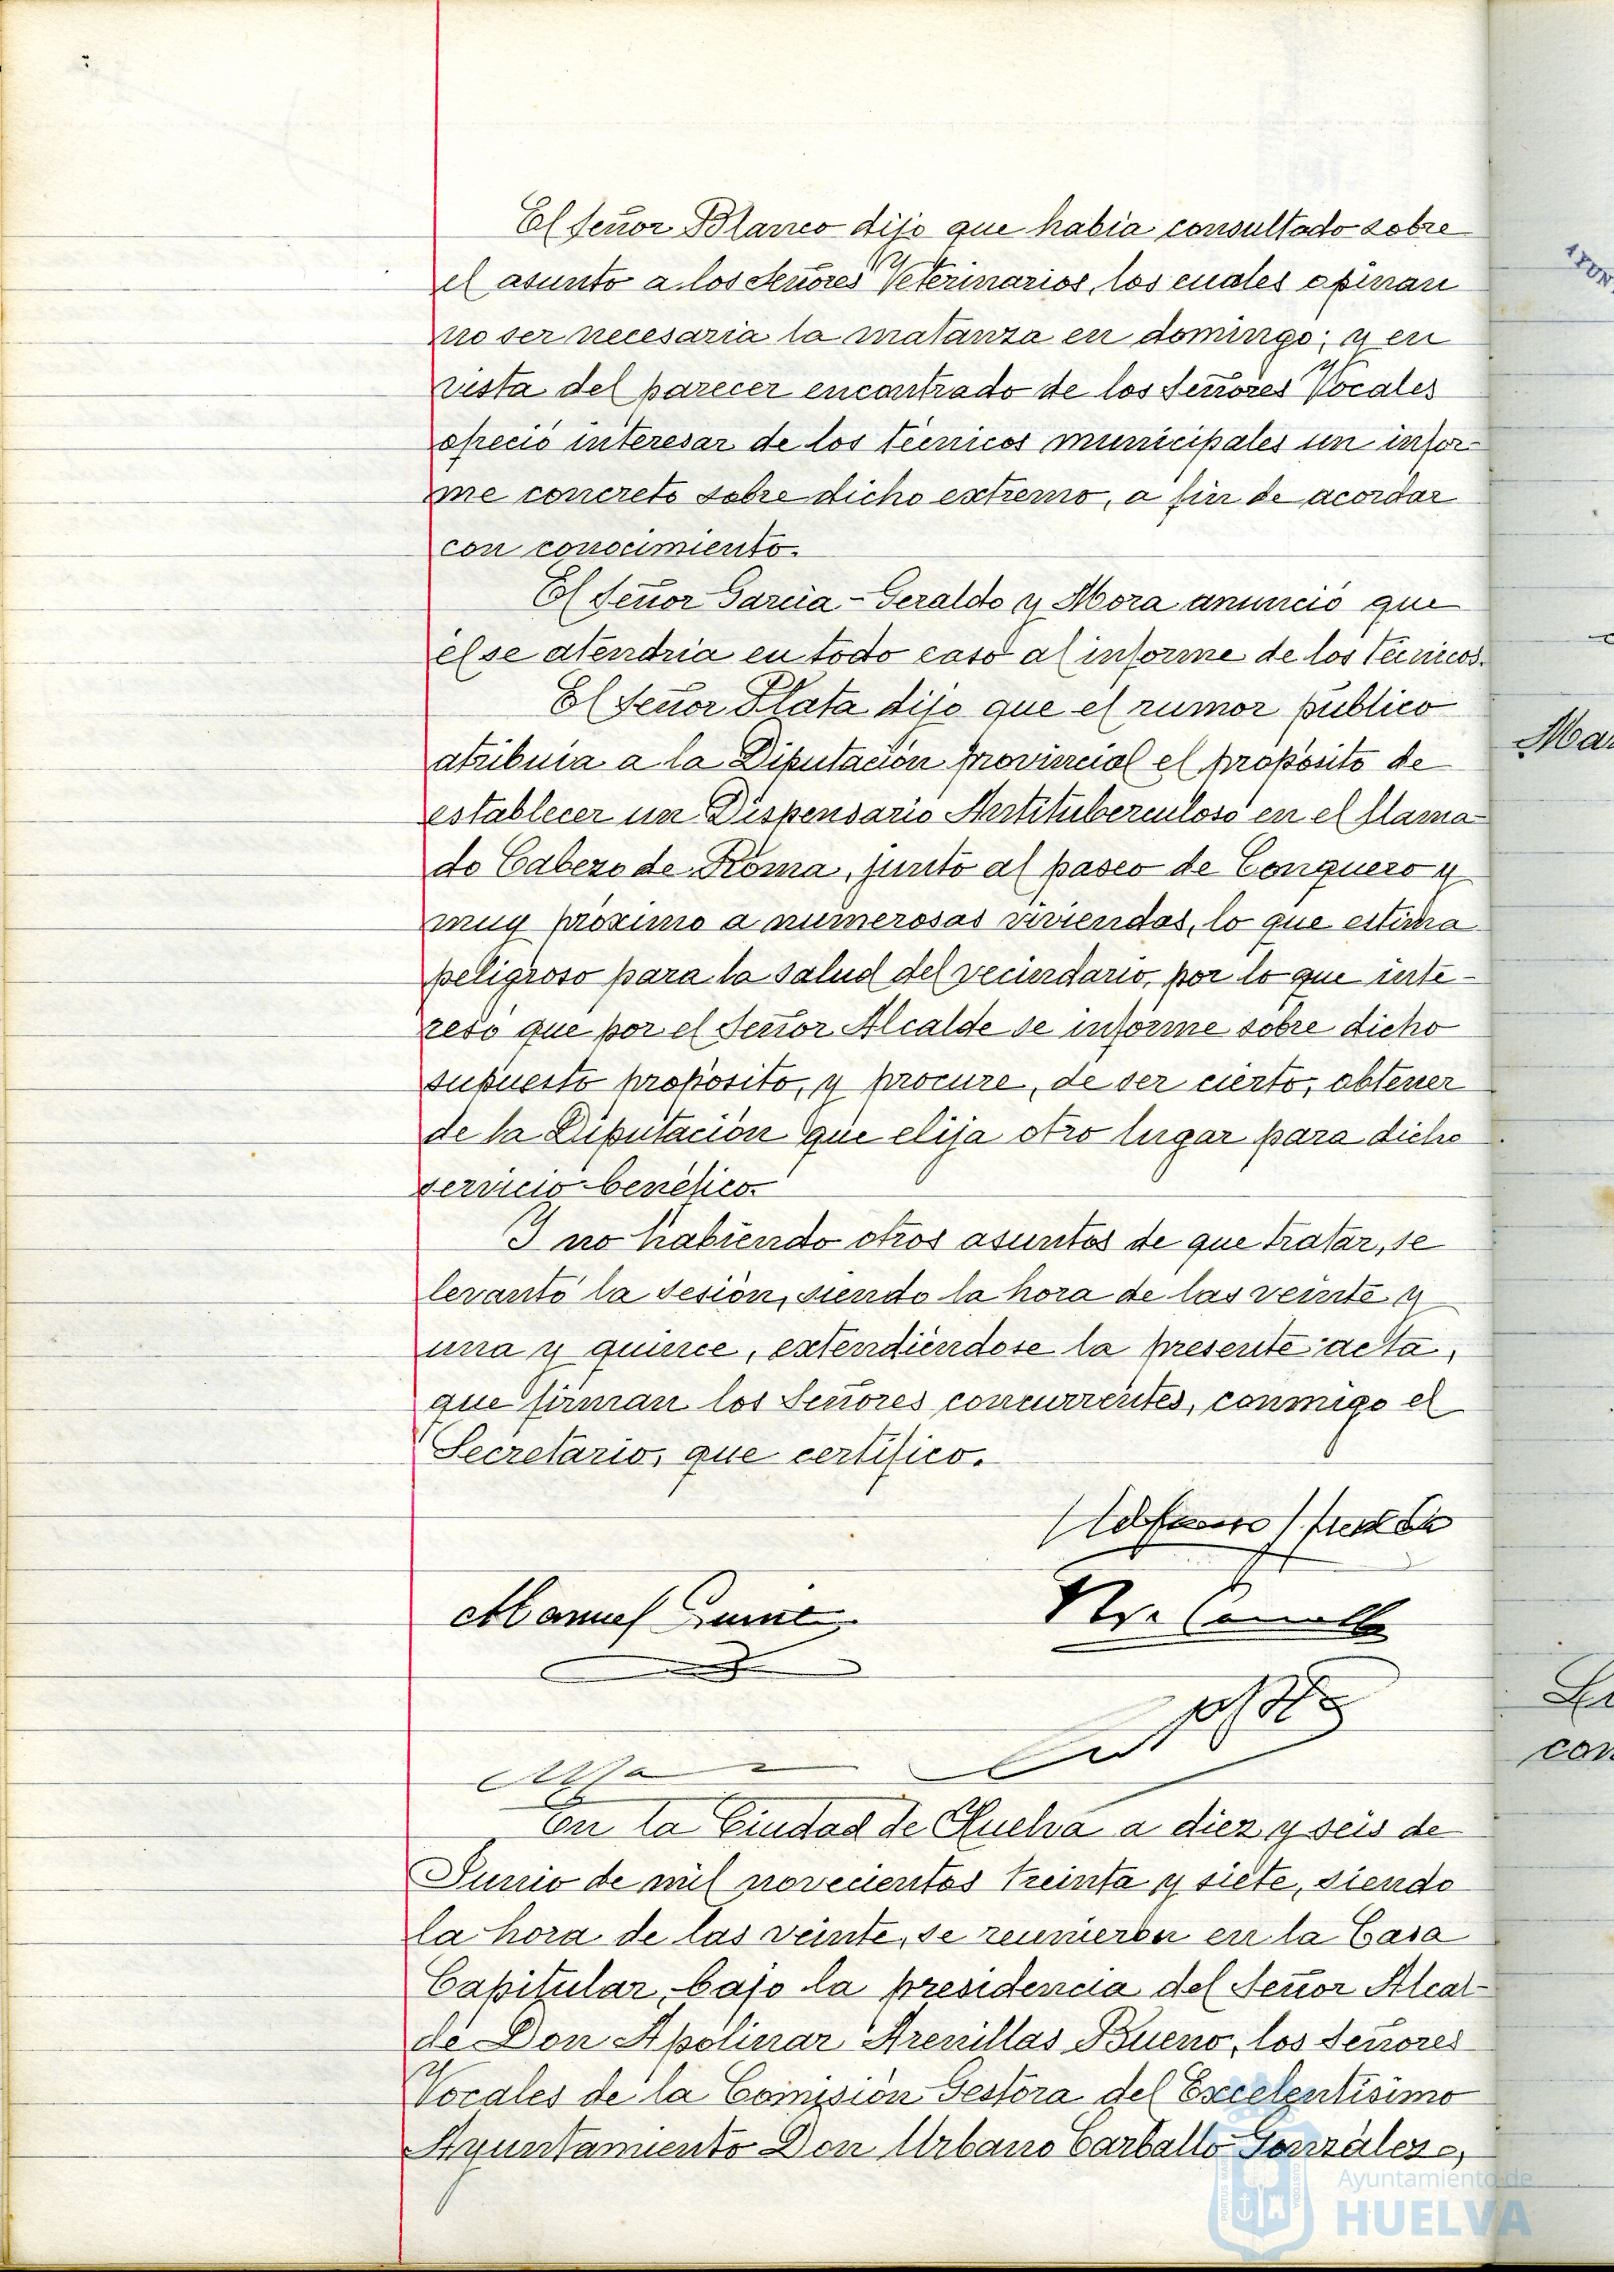 El Señor Blanco dijo que habia consultado sobre
el asunto a los Señores Veterinarios, los cuales opinan
no ser necesaria la matanza en domingo; y en
vista del parecer encontrado de los Señores Vocales
ofreció interesar de los técnicos municipales un infor-
me concreto sobre dicho extremo, a fin de acordar
con conocimiento.
El Señor Garcia-Geraldo y Mora anunció que
él se atendria en todo caso al informe de los técnicos.
El Señor Plata dijo que el rumor público
atribuia a la Diputación provincial el propósito de
establecer un Dispensario Antituberculoso en el llama-
do Cabezo de Roma, junto al paseo de Conquero y
muy próximo a numerosas viviendas, lo que estima
peligroso para la salud del vecindario, por lo que inte-
resó que por el Señor Alcalde se informe sobre dicho
supuesto propósito, y procure, de ser cierto, obtener
de la Diputación que elija otro lugar para dicho
servicio benéfico.
Y no habiendo otros asuntos de que tratar, se
levantó la sesión, siendo la hora de las veinte y
una y quince, extendiéndose la presente acta,
que firman los Señores concurrentes, conmigo el
Secretario, que certifico.
Manuel
En la Ciudad de Huelva a diez y seis de
Junio de mil novecientos treinta y siete, siendo
la hora de las veinte, se reunieron en la Casa
Capitular, bajo la presidencia del Señor Alcal-
de Don Apolinar Arenillas Bueno, los Señores
Vocales de la Comisión Gestora del Excelentísimo
Ayuntamiento Don Urbano Carballo González,
Ayuntamiento de
HUELVA
AYUN
Mar
con